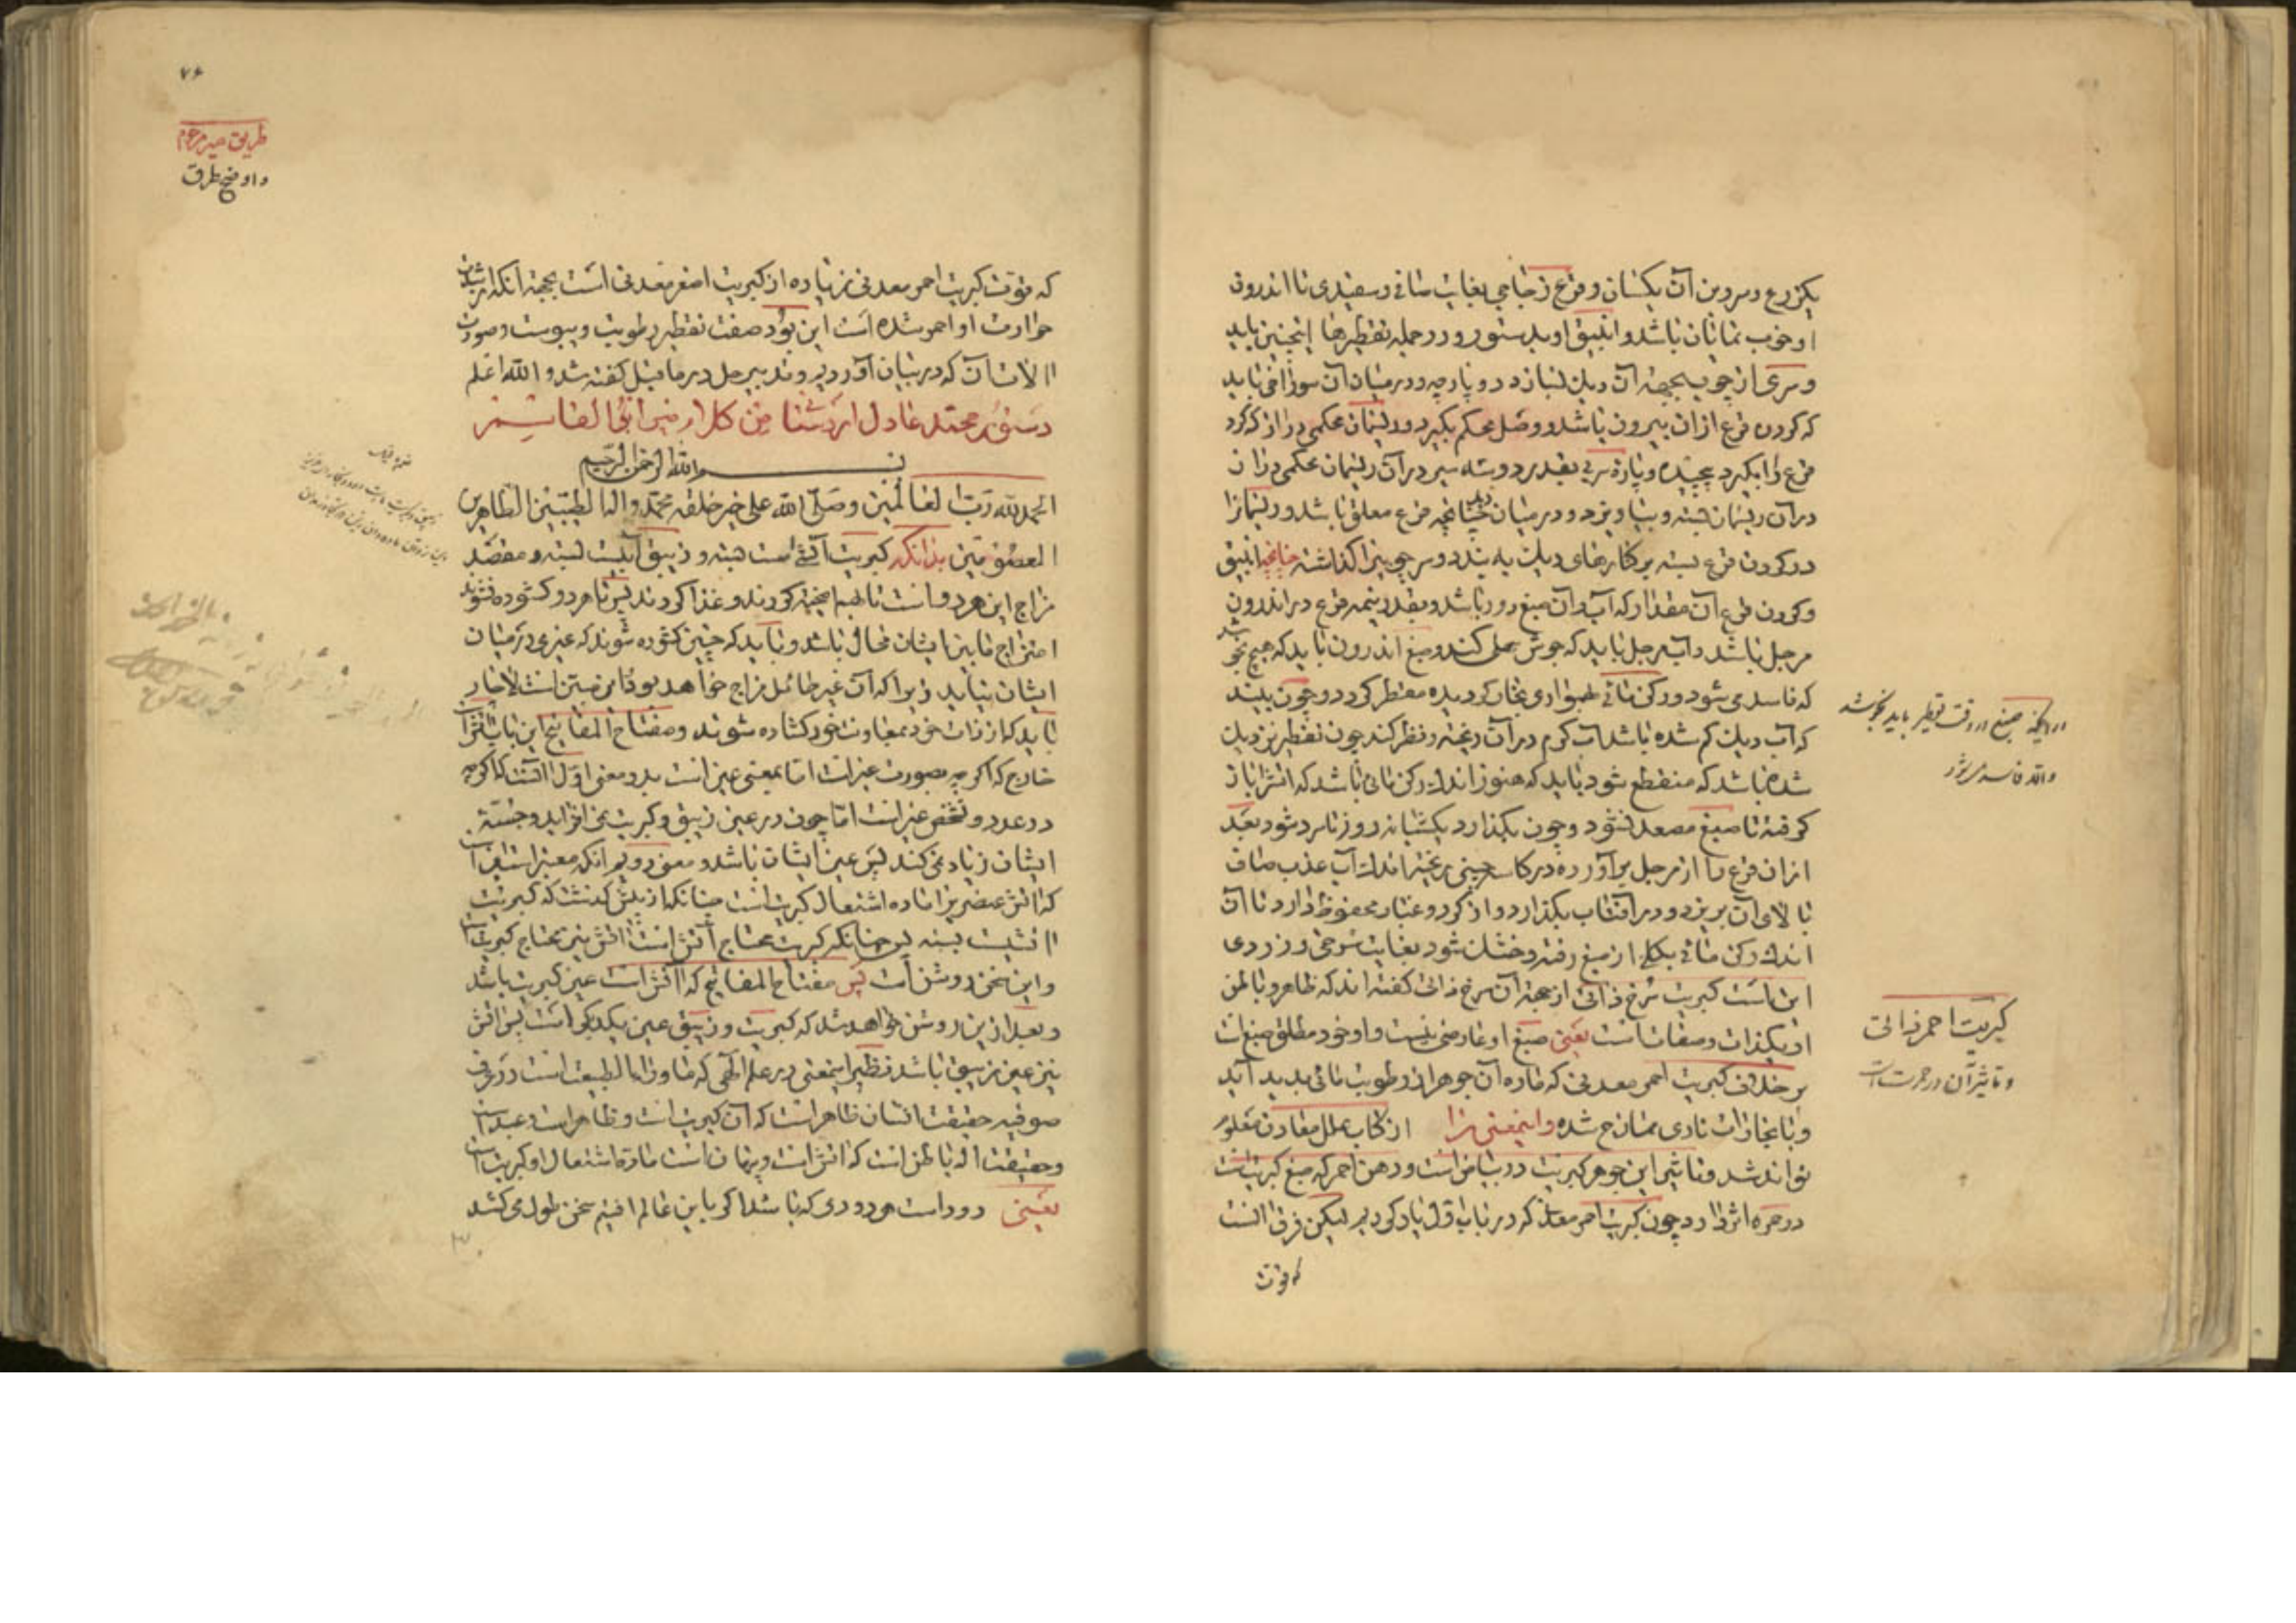 یکزرع و سر و بن آن یکسان و قرع زجاجی بغایت صافی و سفیدی تا اندرون
او خوب نمایان باشد و انبیق او بدستور و در جمله تقطیرها اینچنین باید
و سری از چوب بجهة آن دیک بسازد دو پارچه و در میان آن سوراخی باید
که کردن قرع از ان بیرون باشد و وصل محکم بگیرد و ریسمان محکمی دراز که کرد
قرع را بگیرد پیچیده و پاره سربی بقدر دو سه سیر در آن ریسمان محکمی دران
در آن ریسمان بسته و بیاویزد و در میان دیک چنانچه قرع معلق باشد و ریسمانرا
در کردن قرع بسته بر کنارهای دیک به بندد و سر چوبین را کذاشته چنانچه انبیق
و کردن قرع آن مقدار که آب و آن صبغ دور باشد و بقدر نیمه قرع در اندرون
مرجل باشد و آب مرجل باید که جوش علی کند و صبغ اندرون باید که هیچ نجوشد
که فاسد می شود و رکن مائی بخار کردیده مقطر کردد و چون بیند
که آب دیک کم شده باشد آب کرم در آن ریخته و نظر کند چون تقطیر نزدیک
شده باشد که منقطع شود باید که هنوز اندک رکن مائی باشد که آتش را باز
کرفته تا صبغ مصعد نشود و چون بگذارد یکشبانه روز تا سرد شود بعد
از ان قرع را از مرجل برآورده در کاسه چینی ریخته اندک آب عذب صاف
بالای آن بریزد و در آفتاب بگذارد و از کرد و غبار محفوظ دارد تا آن
اندک رکن مائی بکلی از صبغ رفته و خشک شود بغایت سرخی و زردی
این است کبریت سرخ ذاتی از جهة آن سرخ ذاتی کفته اند که ظاهر و باطن
او بیکذات و صفات است یعنی صبغ او عارضی نیست و او خود مطلق صبغ است
بر خلاف کبریت احمر معدنی که ماده آن جوهر از رطوبت مائی پدید آید
و با بخارات ناری ممتازج شده و اینمعنی ترا از کتاب علل معادن معلوم
تواند شد و تاثیر این جوهر کبریت در بیاض است و دهن احمر که صبغ کبریتست
در حمره اثر دارد چون کبریت احمر معدنی که در باب اول یاد کردیم لیکن فرق آنست
که قوت
در اینکه صبغ در وقت تقطیر باید نجوشد
والا فاسد می شود
کبریت احمر ذاتی
و تاثیر آن در حمرت است
۷۶
طریق میر مرحوم
و اوضح طرق
که قوت کبریت احمر معدنی زیاده از کبریت اصفر معدنی است بجهة آنکه از شدت
حرارت او احمر شده است این بود صفت تقطیر رطوبت و یبوست و صورت
آلات آن که در بیان آوردیم و تدبیر حل در ماقبل کفته شد و الله اعلم
دستور معتمد عادل من کلام میر ابی القاسم
بسم الله الرحمن الرحیم
الحمد لله رب العالمین و صلی الله علی خیر خلقه محمد و اله الطیبین الطاهرین
المعصومین بدانکه کبریت آتشی است بسته و زیبق آبیست بسته و مقصد
مزاج این هر دو است تا بهم امیخته کردند و غذا کردند پس تا هر دو کشوده نشوند
امتزاج مابین ایشان محال باشد و باید که چنین کشوده شوند که غیری در میان
ایشان نیاید زیرا که آن غیر حائل مزاج خواهد بود مابین اینست لاجار
باید که از ذات خود بمعاونت خود کشاده شوند و مفتاح المفاتیح این باب آتش است
خارج که اکر چه بصورت غیر است اما بمعنی عین است بدو معنی اول آنست که اکر چه
در عدد و تشخص غیر است اما چون در عین زیبق و کبریت می افزاید و جثته
ایشان زیاد نمی کند پس عین ایشان باشد و معنی دویم آنکه
که آتش عنصریرا ماده اشتعال کبریت است چنانکه از پیش کذشت که کبریت
آتشیست بسته پس چنانکه کبریت محتاج آتش است آتش نیز محتاج کبریت است
و این سخن روشن است پس مفتاح المفاتیح که آتش است عین کبریت باشد
و بعد ازین روشن خواهد شد که کبریت و زیبق عین یکدیگر است پس آتش
نیز عین زیبق باشد نظیر اینمعنی در علم الهی که ماوراء الطبیعت است در عرف
صوفیه حقیقت انسان ظاهر است که آن کبریت است و ظاهر است و عبد است
و حقیقت اله باطن است که آتش است و پنهان است ماده اشتعال او کبریت است
یعنی دود است هر دودی که باشد اکر باین عالم افتیم سخن بطول می کشد